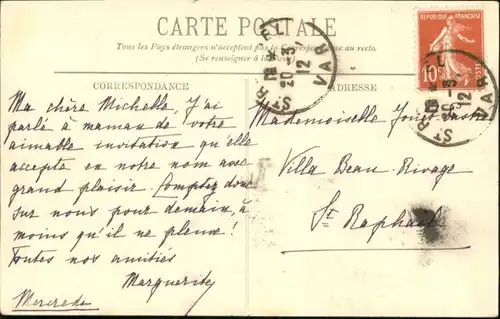 CARTE POSTALE
Tous les Pays étrangers n'acceptent pas la Correspondance au recto.
(Se renseigner à la Poste)
CORRESPONDANCE
ADRESSE
REPUBLIQUE FRANÇAISE
10
POSTES
20 - 3
12
VAR
20 - 3
12
VAR
Ma chère Michelle, J'ai
parlé à maman de votre
aimable invitation qu'elle
accepte en notre nom avec
grand plaisir. Comptez donc
sur nous pour demain, à
moins qu'il ne pleuve!
Toutes nos amitiés
Marguerite
Mercredi
Mademoiselle
Villa Beau Rivage
St Raphaël